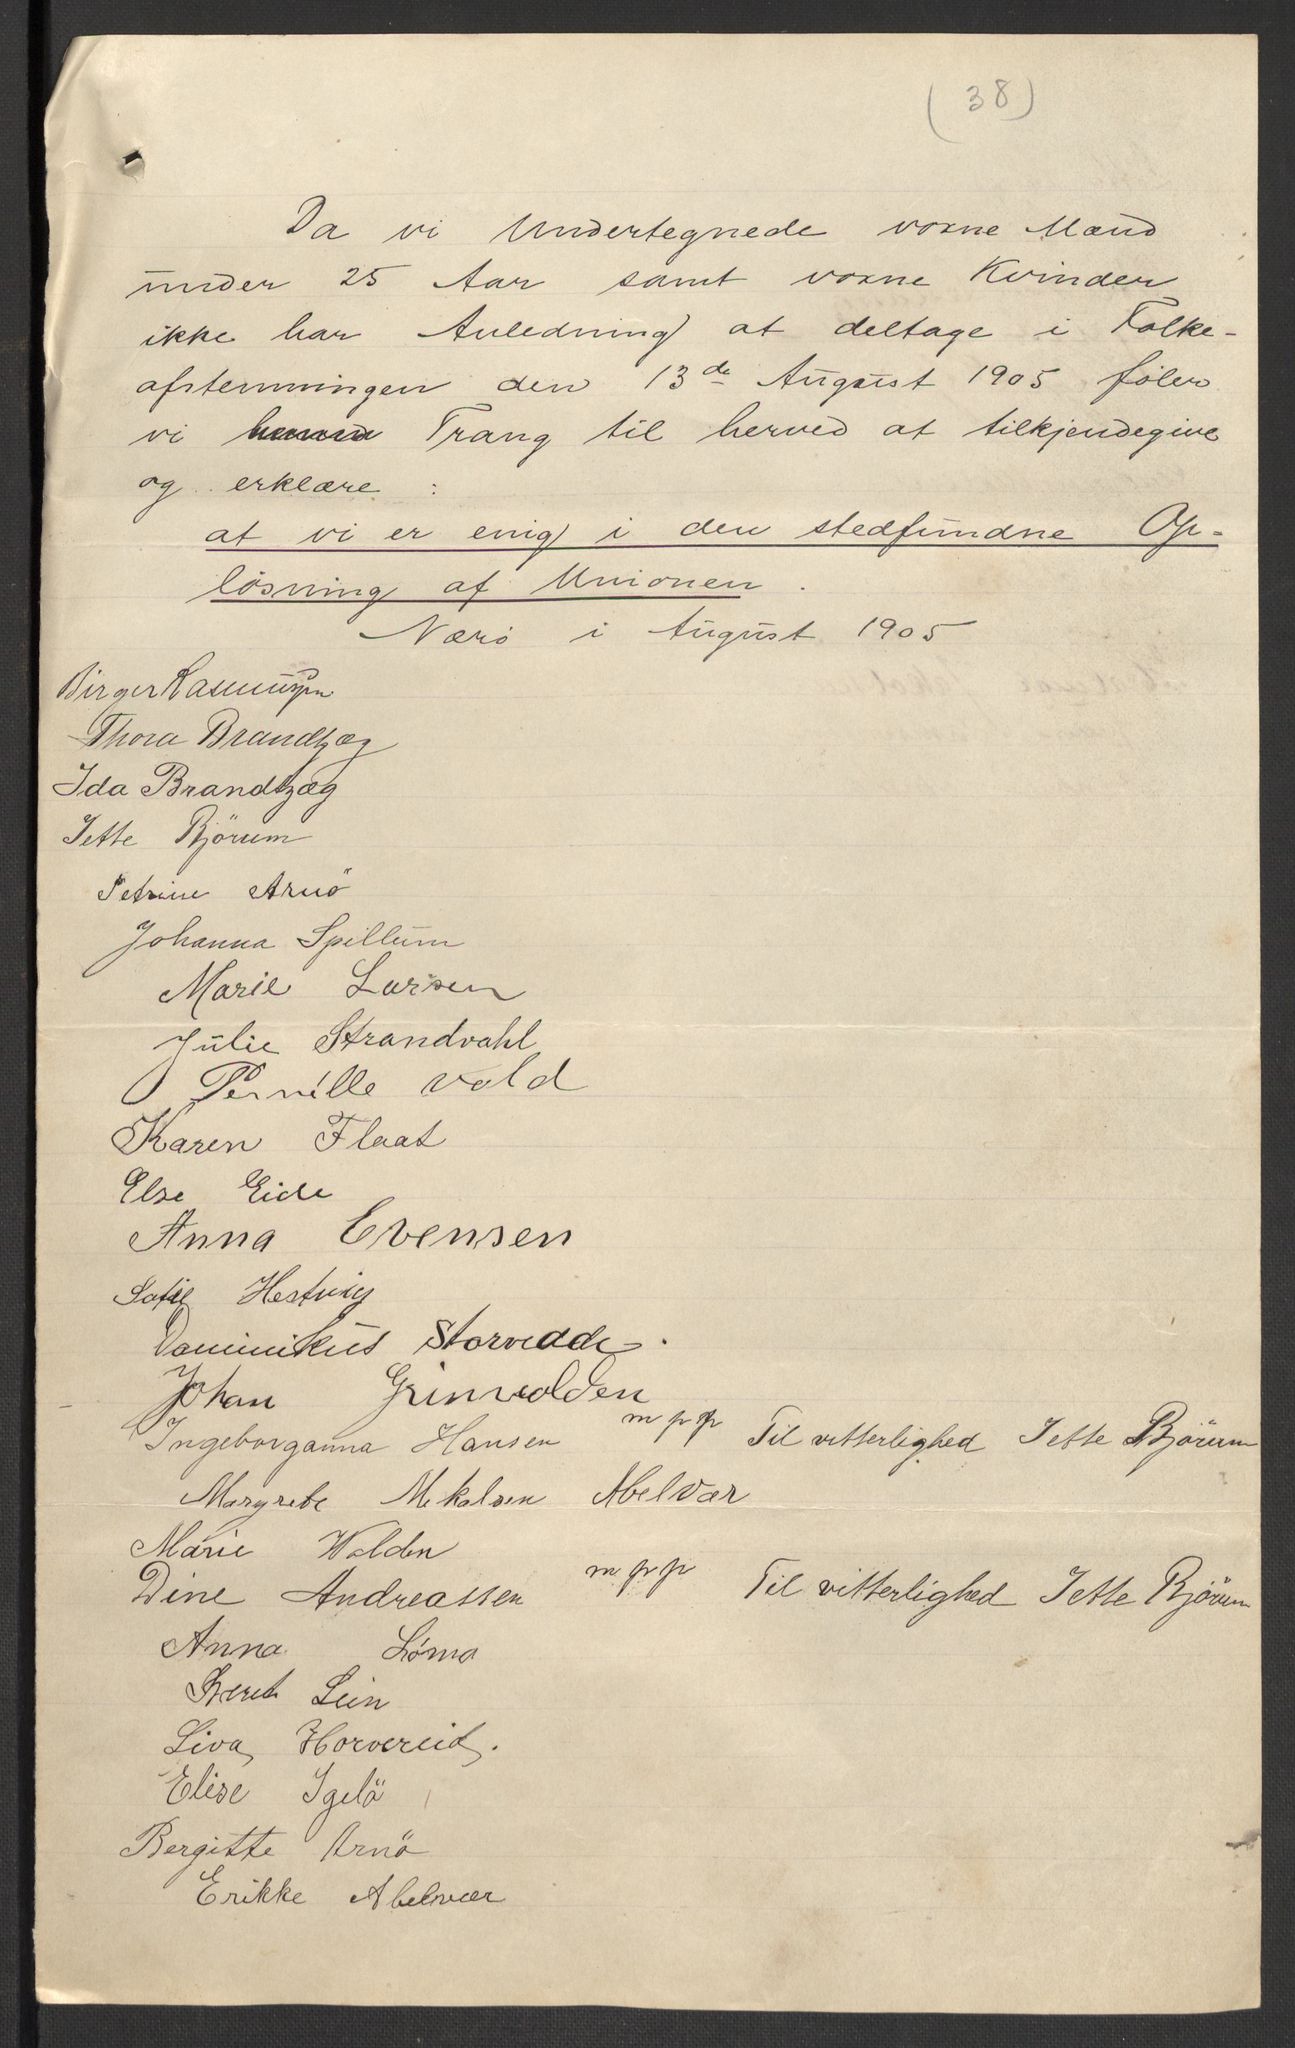 (38)
Da vi Undertegnede voxne Mænd
under 25 Aar samt voxne Kvinder
ikke har Anledning at deltage i Folke-
afstemningen den 13de August 1905 föler
vi Trang til herved at tilkjendegive
og erklære :
at vi er enig i den stedfundne Op-
lösning af Unionen.
Nærö i August 1905
Birger Rasmussen
Thora Brandtzæg
Ida Brandtzæg
Jette Björum
Petrine Arnö
Johanna Spillum
Marie Larsen
Julie Strandvahl
Pernille Vold
Karen Flaat
Else Eide
Anna Evensen
Sofie Hestvig
Dominikus Storvedde.
Johan Grinvolden
Ingeborganna Hansen m p p Til vitterlighed Jette Björum
Margrete Mekalsen Abelvær
Marie Walden
Dine Andreassen m p p Til vitterlighed Jette Björum
Anna Lömo
Beret Lein
Liva Horvereid.
Elise Igelö
Bergitte Arnö
Erikke Abelvær